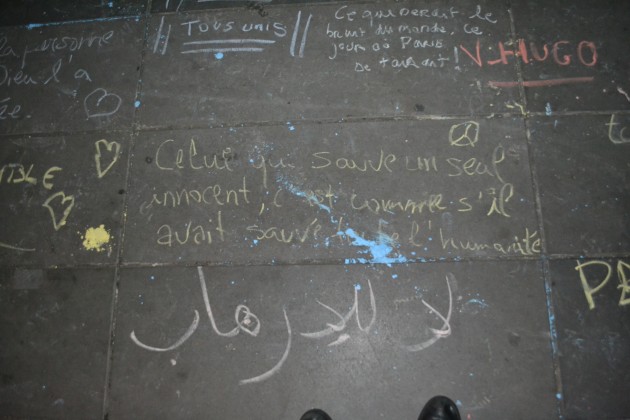 la personne
Dieu l'a
TOUS UNIS
Ce qui serait le
bruit du monde, ce
jour où Paris
se tairait !
V. HUGO
Celui qui sauve un seul
innocent, c'est comme s'il
avait sauvé toute l'humanité
لا للإرهاب